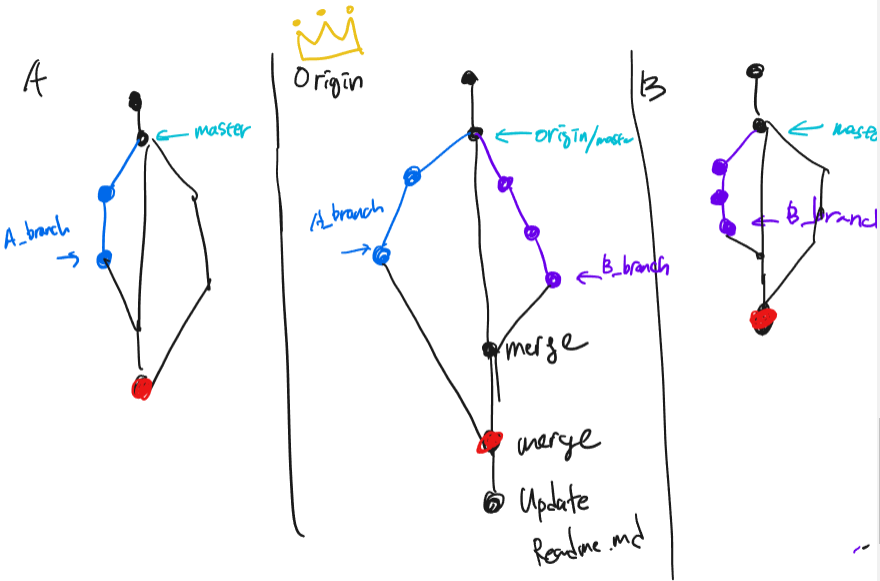 A
master
A_branch
Origin
origin/master
A_branch
B_branch
merge
merge
Update
Readme.md
B
maste
B_branch